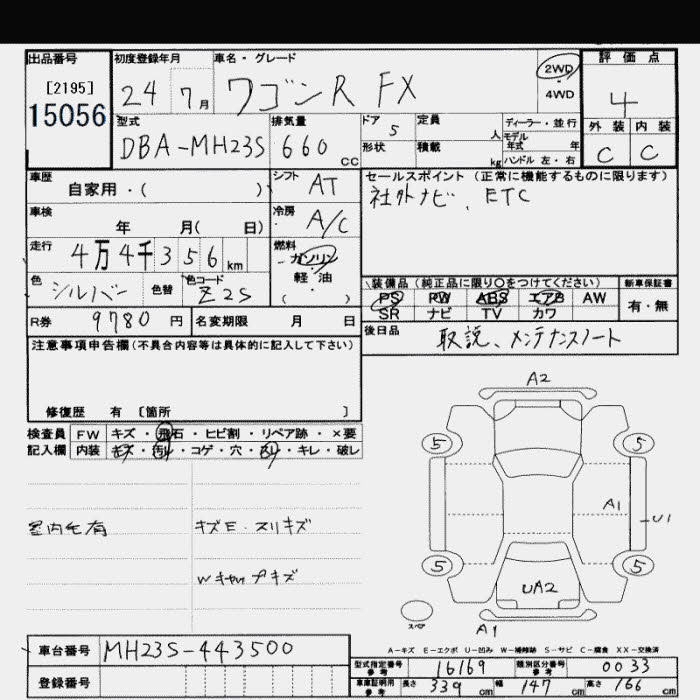 出品番号
[2195]
15056
初度登録年月
24 7月
車名・グレード
ワゴンR FX
2WD
4WD
評価点
4
外装 内装
C C
型式
DBA-MH23S
排気量
660 cc
ドア 5
形状
定員 人
積載 kg
ディーラー・並行
モデル年式 年
ハンドル 左・右
車歴
自家用・( )
シフト AT
車検
年 月( 日)
冷房 A/C
走行
4万4千356km
燃料
ガソリン
軽・油
( )
色 シルバー
色替
色コード Z2S
R券 9780円
名変期限 月 日
セールスポイント(正常に機能するものに限ります)
社外ナビ、ETC
装備品(純正品に限り○をつけてください)
PS PW ABS エアB AW
SR ナビ TV カワ
新車保証書
有・無
後日品
取説、メンテナンスノート
注意事項申告欄(不具合内容等は具体的に記入して下さい)
修復歴 有 [箇所 ]
検査員 FW キズ・飛石・ヒビ割・リペア跡・×要
記入欄 内装 キズ・汚れ・コゲ・穴・スレ・キレ・破レ
室内モ有
キズE・スリキズ
A2
5 5
A1
U1
5 5
UA2
スペア
A1
A-キズ E-エクボ U-凹み W-補修跡 S-サビ C-腐食 XX-交換済
車台番号 MH23S-443500
登録番号
型式指定番号 参考 16169
類別区分番号 参考 0033
車庫証明用 参考 長さ 339cm 幅 147cm 高さ 166cm